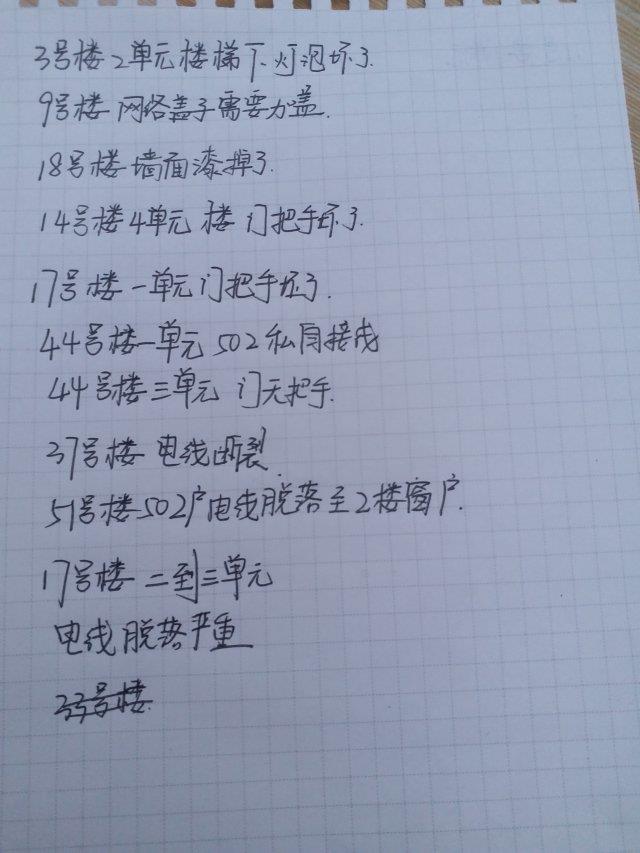 3号楼2单元楼梯下灯泡坏了.
9号楼 网络盖子需要加盖.
18号楼 墙面漆掉了.
14号楼4单元 楼 门把手坏了.
17号楼一单元门把手坏了.
44号楼一单元 502私自接线
44号楼三单元 门无把手.
37号楼 电线断裂.
51号楼502户电线脱落至2楼窗户.
17号楼 二到三单元
电线脱落严重
33号楼